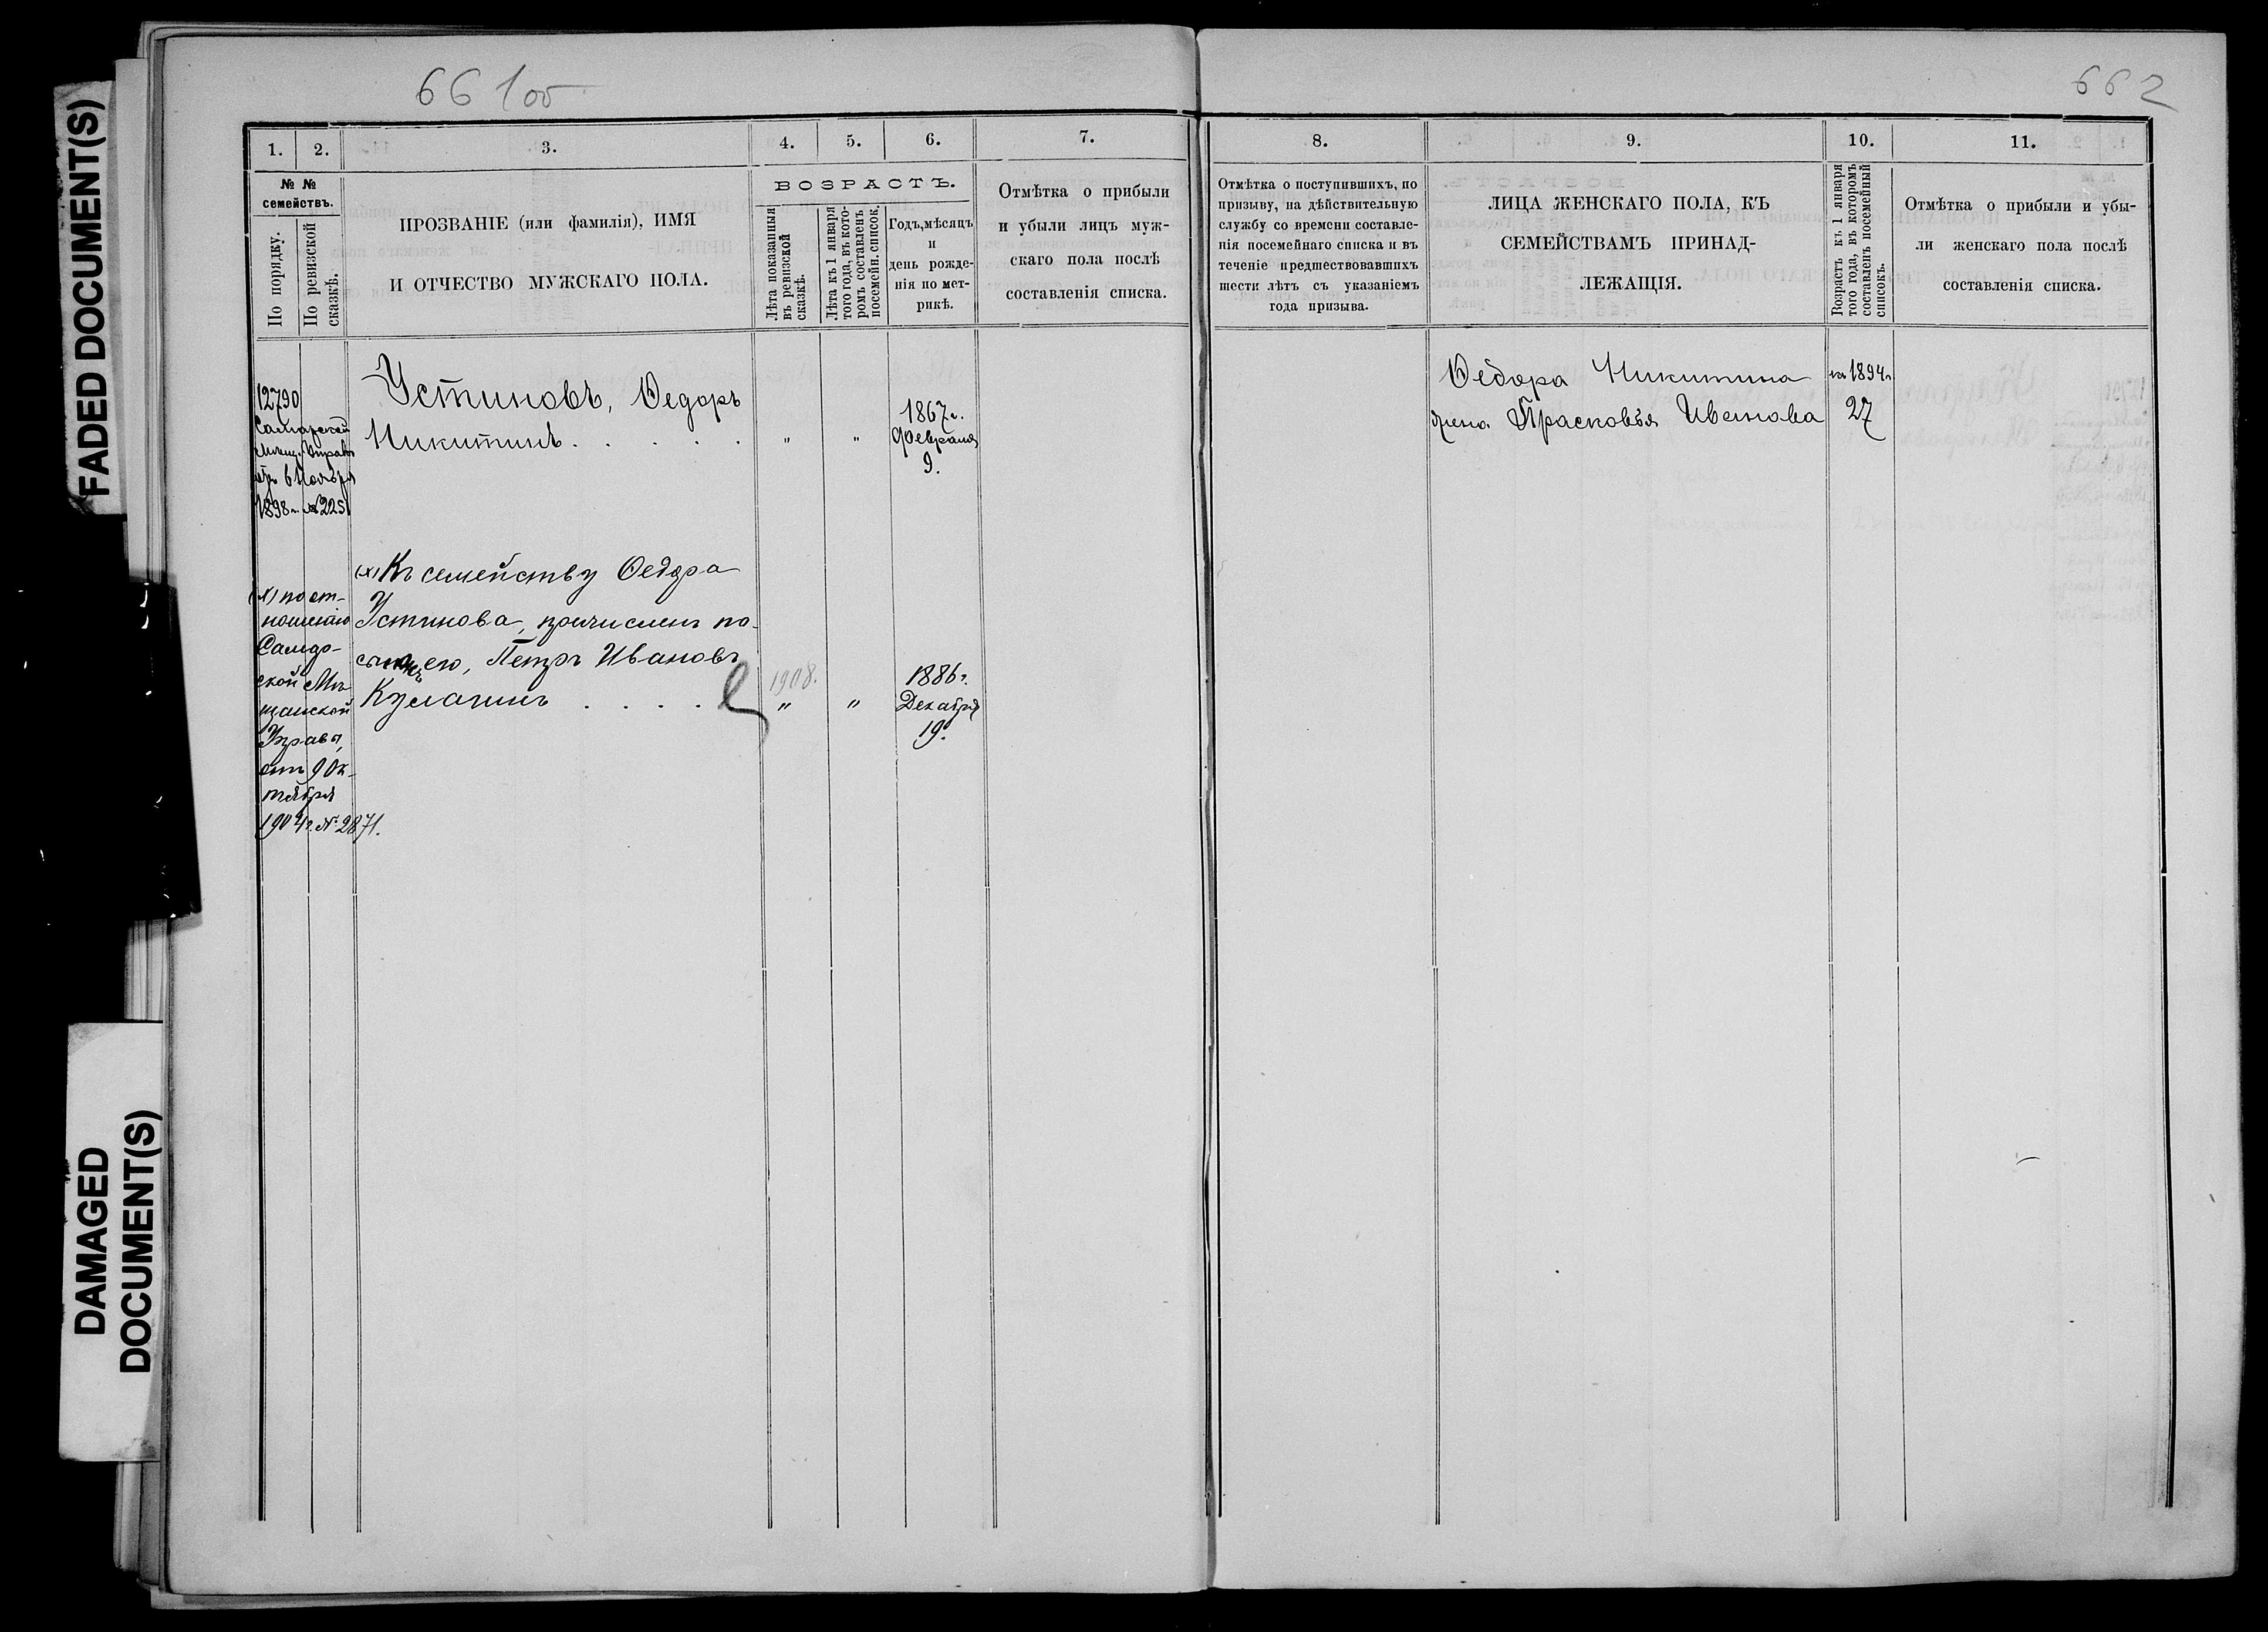 FADED DOCUMENT(S)
DAMAGED
DOCUMENT(S)
661об
1. 2. 3. 4. 5. 6. 7.
№ №
семействъ.
По порядку.
По ревизской
сказкѣ.
ПРОЗВАНІЕ (или фамилія), ИМЯ
И ОТЧЕСТВО МУЖСКАГО ПОЛА.
ВОЗРАСТЪ.
Лѣта показанныя
въ ревизской
сказкѣ.
Лѣта къ 1 января
того года, въ кото-
ромъ составленъ
посемейн. список.
Годъ, мѣсяцъ
и
день рожде-
нія по мет-
рикѣ.
Отмѣтка о прибыли
и убыли лицъ муж-
скаго пола послѣ
составленія списка.
12790
Самарской
Мѣщ. Управы
отъ 6 Ноября
1898 г. №2251
Устиновъ, Ѳедоръ
Никитинъ . . . . .
" "
1867 г.
Февраля
9.
(х) по от-
ношенію
Самар-
ской Мѣ-
щанской
Управы,
отъ 9 Ок-
тября
1904 г. № 2871.
(х) Къ семейству Ѳедора
Устинова, причисленъ па-
сынокъ его, Петръ Ивановъ
Кулагинъ . . . .
1908.
" "
1886 г.
Декабря
19.
662
8. 9. 10. 11.
Отмѣтка о поступившихъ, по
призыву, на дѣйствительную
службу со времени составле-
нія посемейнаго списка и въ
теченіе предшествовавшихъ
шести лѣтъ съ указаніемъ
года призыва.
ЛИЦА ЖЕНСКАГО ПОЛА, КЪ
СЕМЕЙСТВАМЪ ПРИНАД-
ЛЕЖАЩІЯ.
Возрастъ къ 1 января
того года, въ которомъ
составленъ посемейный
списокъ.
Отмѣтка о прибыли и убы-
ли женскаго пола послѣ
составленія списка.
Ѳедора Никитина
жена Прасковья Иванова
на 1894 г.
27